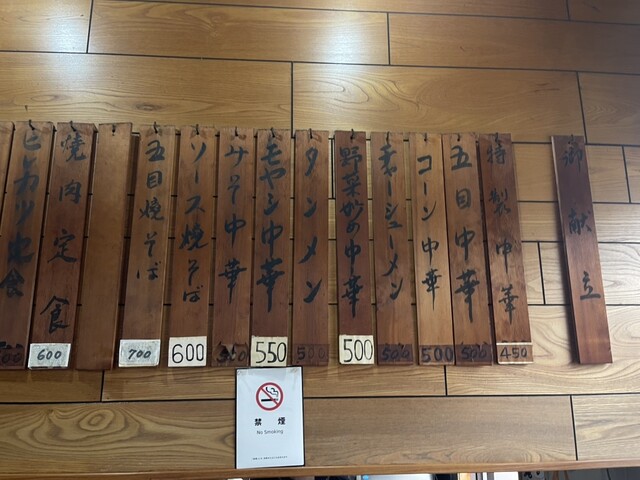 御献立
特製中華
450
五目中華
500
コーン中華
500
チャーシューメン
500
野菜炒め中華
500
タンメン
500
モヤシ中華
550
みそ中華
ソース焼そば
600
五目焼そば
700
焼肉定食
600
ヒレカツ定食
禁煙
No Smoking